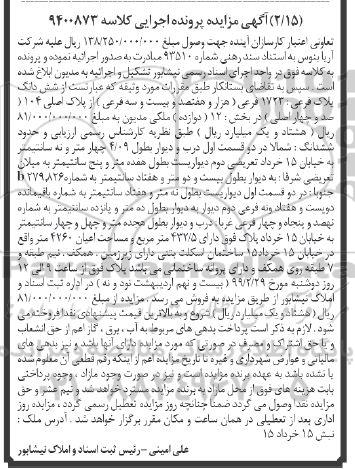 (۲/۱۵) آگهی مزایده پرونده اجرایی کلاسه ۹۴۰۰۸۷۳
تعاونی اعتبار کارسازان آینده جهت وصول مبلغ ۱۳۸/۲۵۰/۰۰۰/۰۰۰ ریال علیه شرکت
آریا بتوس به استناد سند رهنی شماره ۹۳۵۱۰ مبادرت به صدور اجرائیه نموده و پرونده
به کلاسه فوق در واحد اجرای اسناد رسمی نیشابور تشکیل و اجرائیه به مدیون ابلاغ شده
است . سپس به تقاضای بستانکار طبق مقررات مورد وثیقه که عبارتست از شش دانگ
پلاک فرعی : ۱۷۲۳ فرعی ( هزار و هفتصد و بیست و سه فرعی ) از پلاک اصلی ۱۰۴ (
صد و چهار اصلی ) در بخش : ۱۲ ( دوازده ) ملکی مدیون به مبلغ ۸۱/۰۰۰/۰۰۰/۰۰۰
ریال ( هشتاد و یک میلیارد ریال ) طبق نظریه کارشناس رسمی ارزیابی و حدود
ششدانگ : شمالا در دو قسمت اول درب و دیوار بطول ۴/۰۹ چهار متر و نه سانتیمتر
به خیابان ۱۵ خرداد تعریضی دوم دیواریست بطول هفده متر و پنج سانتیمتر به میلان
تعریضی شرقا : به دیوار بطول بیست و دو متر و هفتاد سانتیمتر به شماره ۲۷۹,۸۲۶b
جنوبا: در دو قسمت اول دیواریست بطول نه متر و هفتاد سانتیمتر به شماره باقیمانده
دویست و هفتاد ونه فرعی دوم دیوار به دیوار بطول ده متر و پانزده سانتیمتر به شماره
نهصد و پنجاه و چهار فرعی غربا : درب و دیوار بطول هجده متر و چهل و چهار سانتیمتر
به خیابان ۱۵ خرداد پلاک فوق دارای ۴۳۲/۵ متر مربع و مساحت اعیان ۴۲۶۰ متر واقع
در خیابان ۱۵ خرداد۱۵ ساختمان اسکلت بتنی دارای زیرزمین . همکف . نیم طبقه و
۷ طبقه روی همکف و دارای پروانه ساختمانی می باشد پلاک فوق از ساعت ۹ الی ۱۲
روز دوشنبه مورخ ۹۹/۲/۲۹ ( بیست و نهم اردیبهشت نود و نه ) در اداره ثبت اسناد و
املاک نیشابور از طریق مزایده به فروش می رسد . مزایده از مبلغ ۸۱/۰۰۰/۰۰۰/۰۰۰
ریال ( هشتاد و یک میلیارد ریال ) شروع و به بالاترین قیمت پیشنهادی نقدا فروخته می
شود . لازم به ذکر است پرداخت بدهی های مربوط به آب ، برق ، گاز اعم از حق انشعاب
و یا حق اشتراک و مصرف در صورتی که مورد مزایده دارای آنها باشد و نیز بدهی های
مالیاتی و عوارض شهرداری و غیره تا تاریخ مزایده اعم از اینکه رقم قطعی آن معلوم شده
یا نشده باشد به عهده برنده مزایده است و نیز در صورت وجود مازاد ، وجوه پرداختی
بابت هزینه های فوق از محل مازاد به برنده مزایده مسترد خواهد شد و نیم عشر و حق
مزایده نقدا وصول می گردد ضمنا چنانچه روز مزایده تعطیل رسمی گردد ، مزایده روز
اداری بعد از تعطیلی در همان ساعت و مکان مقرر برگزار خواهد شد . آدرس ملک :
نبش ۱۵ خرداد ۱۵
علی امینی – رئیس ثبت اسناد و املاک نیشابور